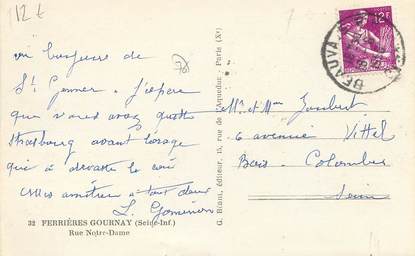 12 €
un bonjour de
St Germer. J'espère
que vous avez quitté
Strasbourg avant l'orage
qui a dévasté le
amitiés à tout deux
L.
32 FERRIÈRES GOURNAY (Seine-Inf.)
Rue Notre-Dame
G. Réant, éditeur, 15, rue de l'Aqueduc - Paris (Xe)
12F
BEAUVAIS
Mr et Mme Joubert
6 avenue Vittel
Bois-Colombes
Seine